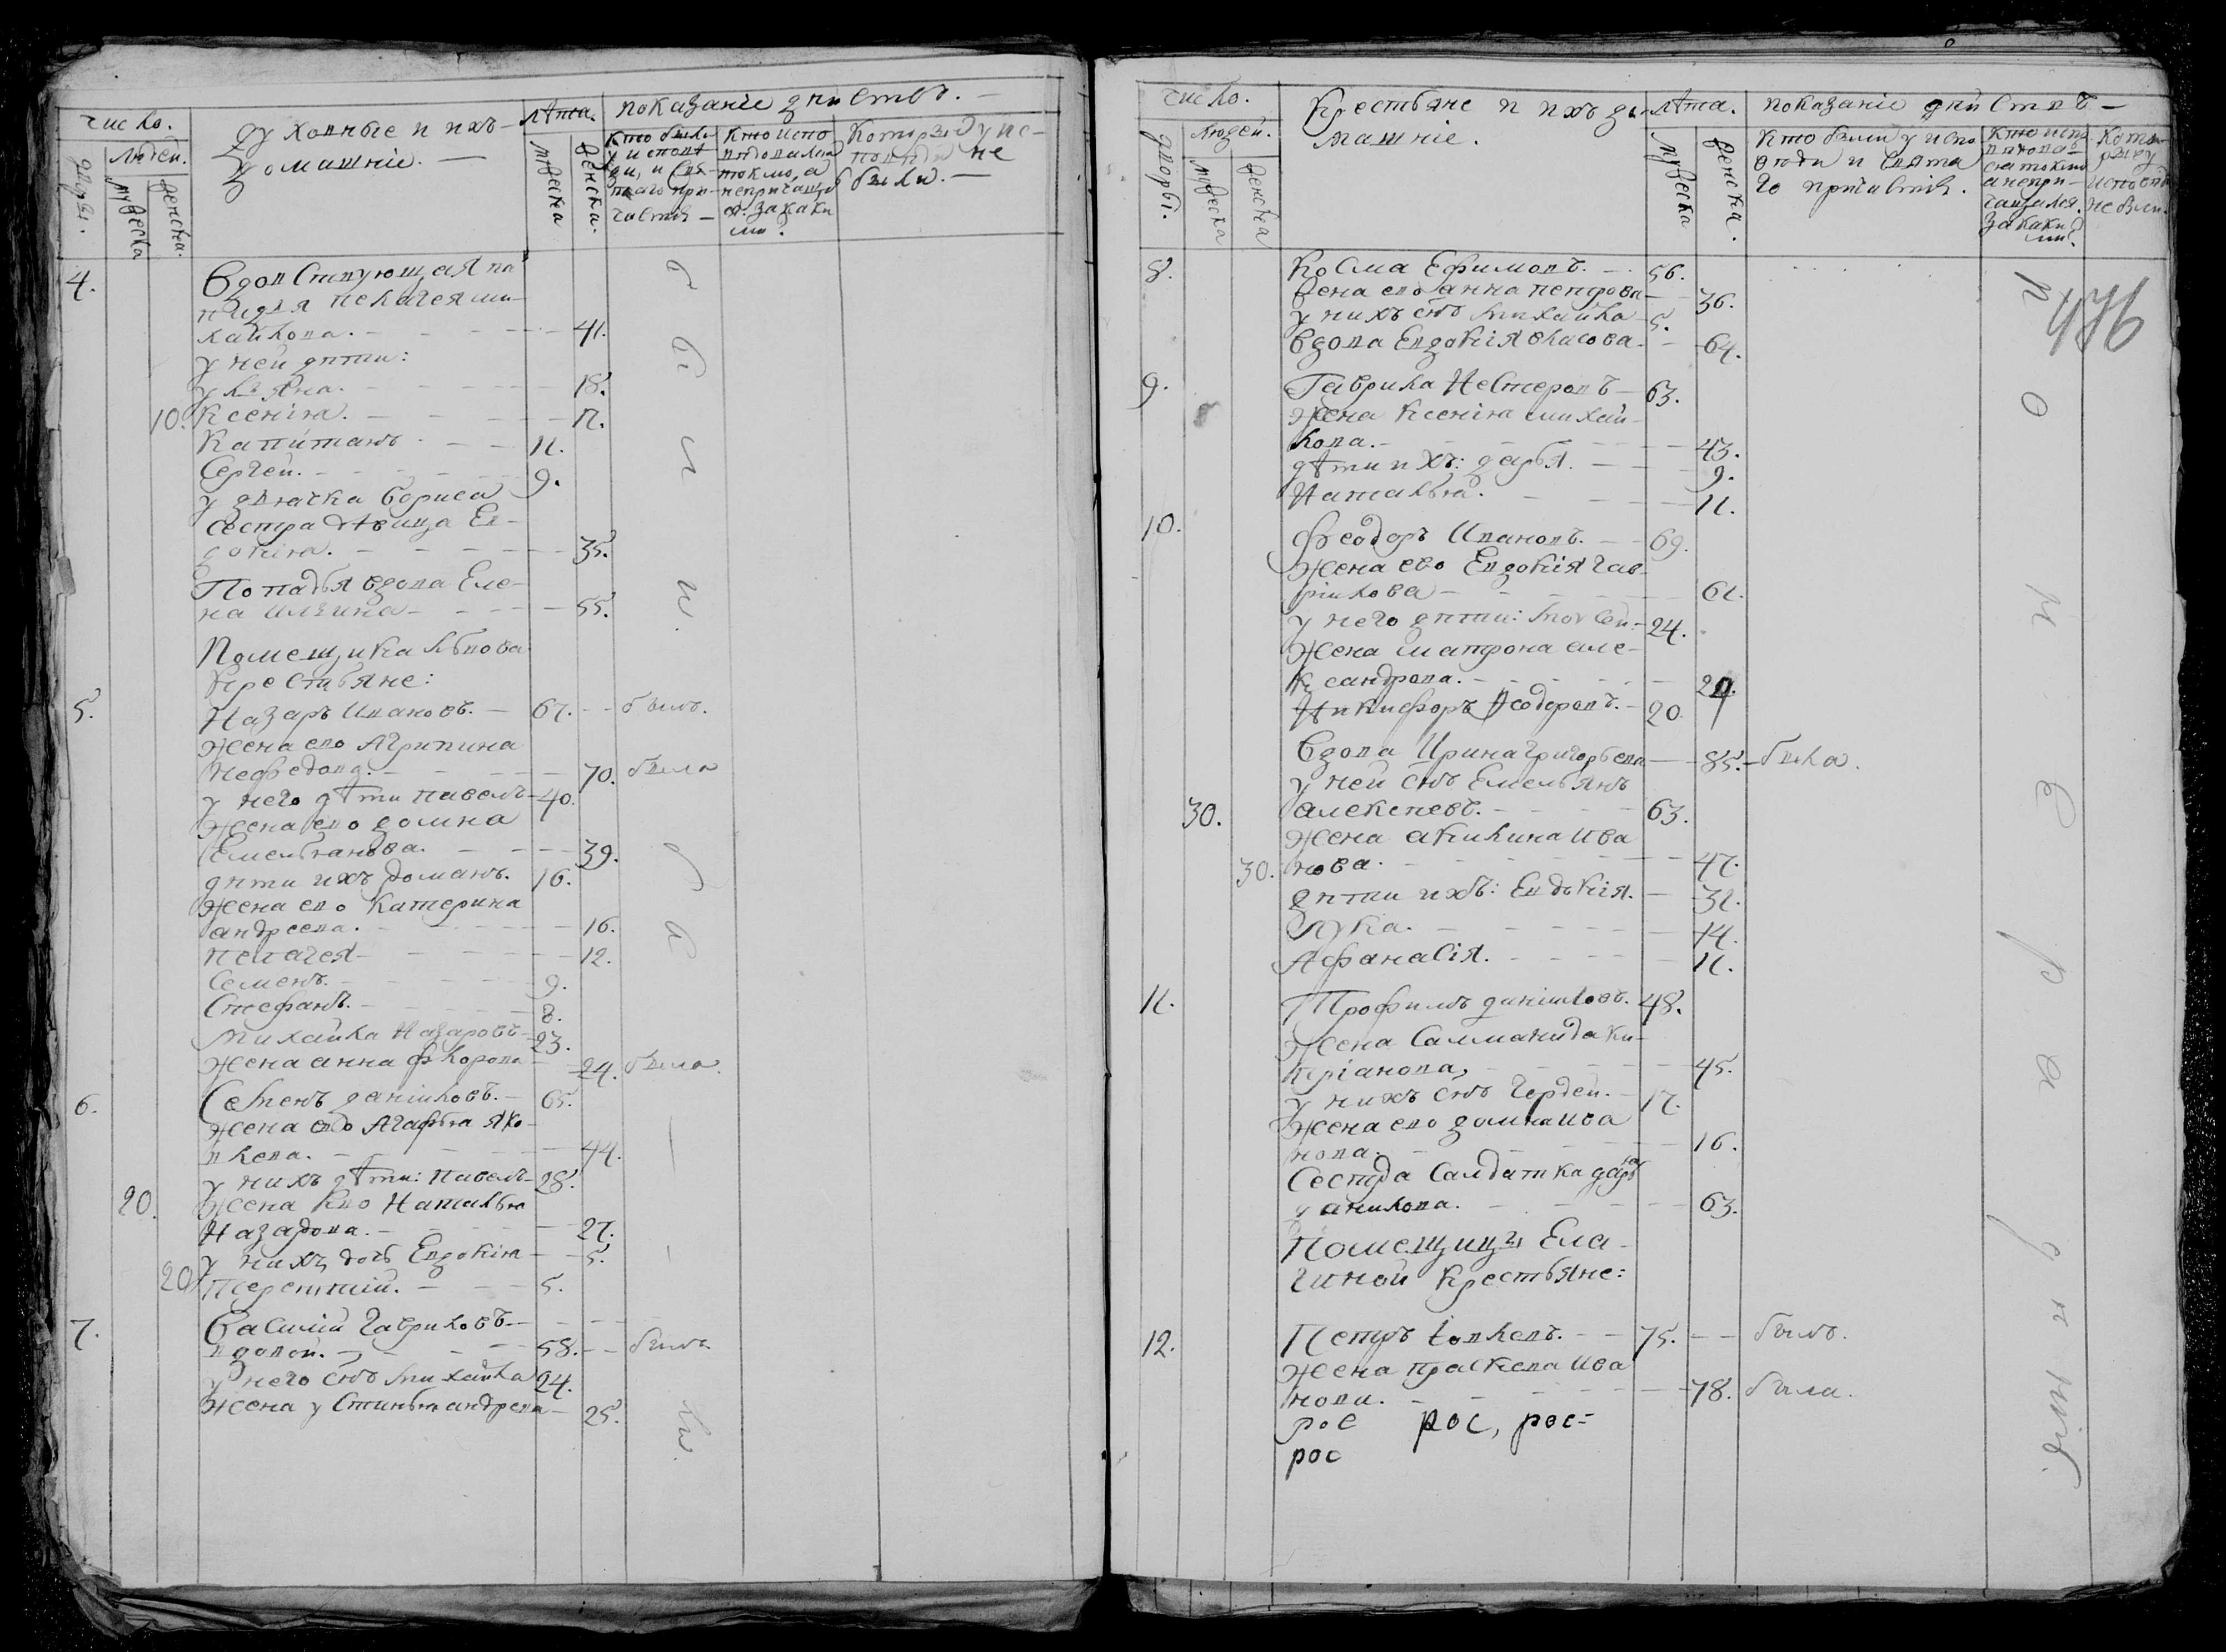 число.
духовные и ихъ
домашніе. —
лѣта.
показаніе дѣйствъ. —
дворы.
людей.
мужеска
женска.
мужеска
женска.
кто были
у исповѣ
ди, и свя-
таго при-
частія —
кто испо
вѣдовался
токмо, а
непричащ
за каки
ми.
которые у ис-
повѣди не
были. —
4.
вдовствующая по
падья пелагея ми-
хайлова. — 41.
у ней дѣти:
ульяна. — 18.
10. ксенія. — 12.
капитанъ — 11.
Сергей. — 9.
у дьячка бориса
сестра дѣвица Ев-
докія. — 35.
Попадья вдова Еле-
на ильина — 55.
Помещика львова
крестьяне:
5. Назаръ Ивановъ. — 67. — былъ.
жена ево Агрипина
нефедова. — 70. была
у него дѣти павелъ — 40.
жена ево домна
Емельянова. — 39.
дѣти ихъ романъ. 16.
жена ево катерина
андреева. — 16.
пелагея — 12.
Семенъ. — 9.
Стефанъ. — 8.
михайла Назаровъ — 23.
жена анна флорова — 24. была.
6. Семенъ даниловъ. — 65.
жена ево Агафья яко-
влева. — 44.
у нихъ дѣти: павелъ — 28.
20. жена ево Наталья
Назарова. — 27.
у нихъ дочь Евдокія — 5.
20 терентій. — 5.
7. василій гавриловъ —
вдовой. — 58. — былъ
у него сынъ михайла 24.
жена устинья андреева — 25.
число.
крестьяне и ихъ до-
машніе.
лѣта.
показаніе дѣйствъ —
дворы.
людей.
мужеска
женска
мужеска
женска.
кто были у испо
вѣди и свята
го причастія.
кто испо
вѣдовал
ся токмо
а непри-
чащался.
за каки
ми.
кото
рые у
исповѣди
не были.
476
8. косма Ефимовъ. — 56.
жена ево анна петрова — 36.
у нихъ сынъ михайла — 5.
вдова Евдокія власова — 64.
9. Гаврила Несторовъ — 63.
жена ксенія михай-
лова. — 43.
дѣти ихъ: дарья. — 9.
Наталья. — 11.
10. феодоръ Ивановъ. — 69.
жена ево Евдокія гав-
рилова — 61.
у него дѣти: моисей — 24.
жена матрона але-
ксандрова. —
Никифоръ феодоровъ. — 20.
вдова Ирина григорьева — 85. — была.
у ней сынъ Емельянъ
30. алексеевъ. — 63.
жена акилина ива
30. нова. — 47.
дѣти ихъ: Евдокія. — 31.
лука. — 14.
Афанасія. — 11.
11. Трофимъ даниловъ. 48.
жена Саламанида ки-
пріанова, — 45.
у нихъ сынъ гордей. — 17.
жена ево домна ива
нова. — 16.
Сестра Салдатка дарья
данилова. — 63.
Помещицы Ела-
гиной крестьяне:
12. Петръ іовлевъ. — 75. — былъ.
жена праскева ива
нова. — 78. была.
рос рос, рос-
рос